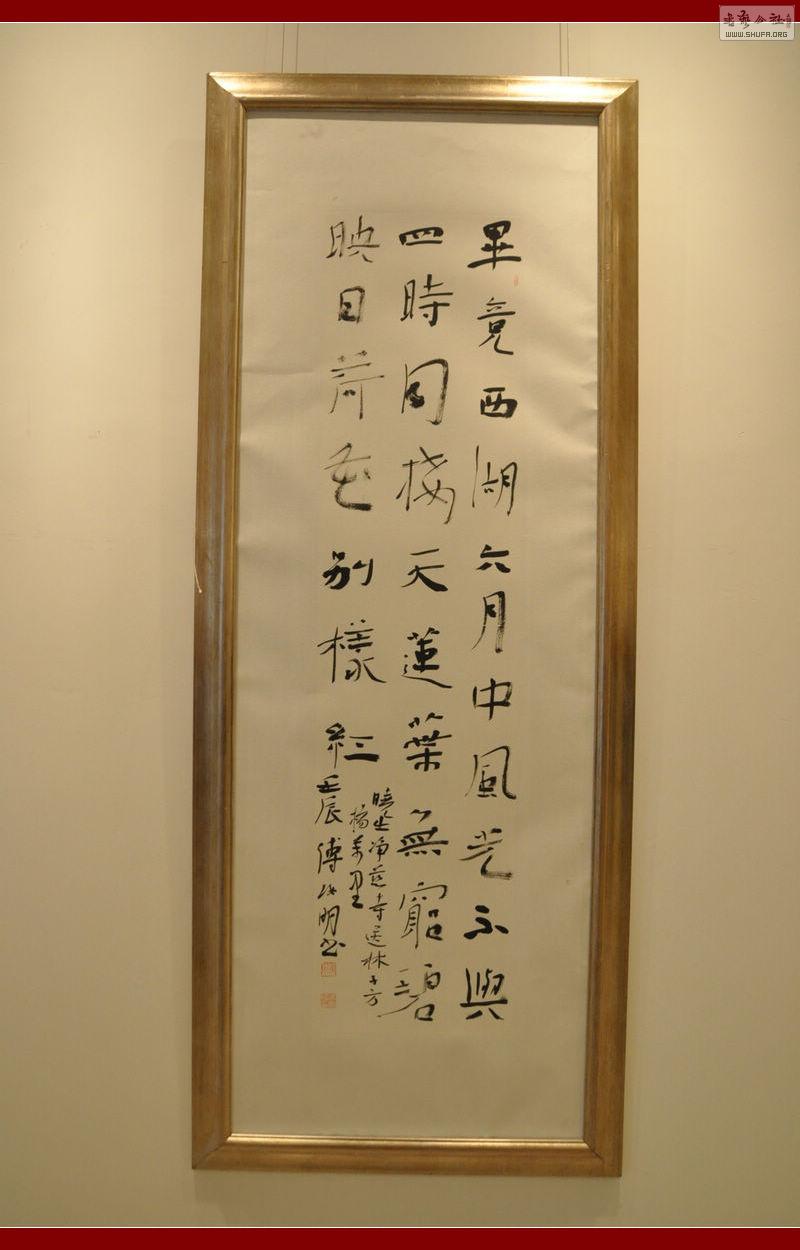 畢竟西湖六月中風光不與
四時同接天蓮葉無窮碧
映日荷花別樣紅
曉出净慈寺送林子方
楊萬里
壬辰傅明书
书艺公社
WWW.SHUFA.ORG